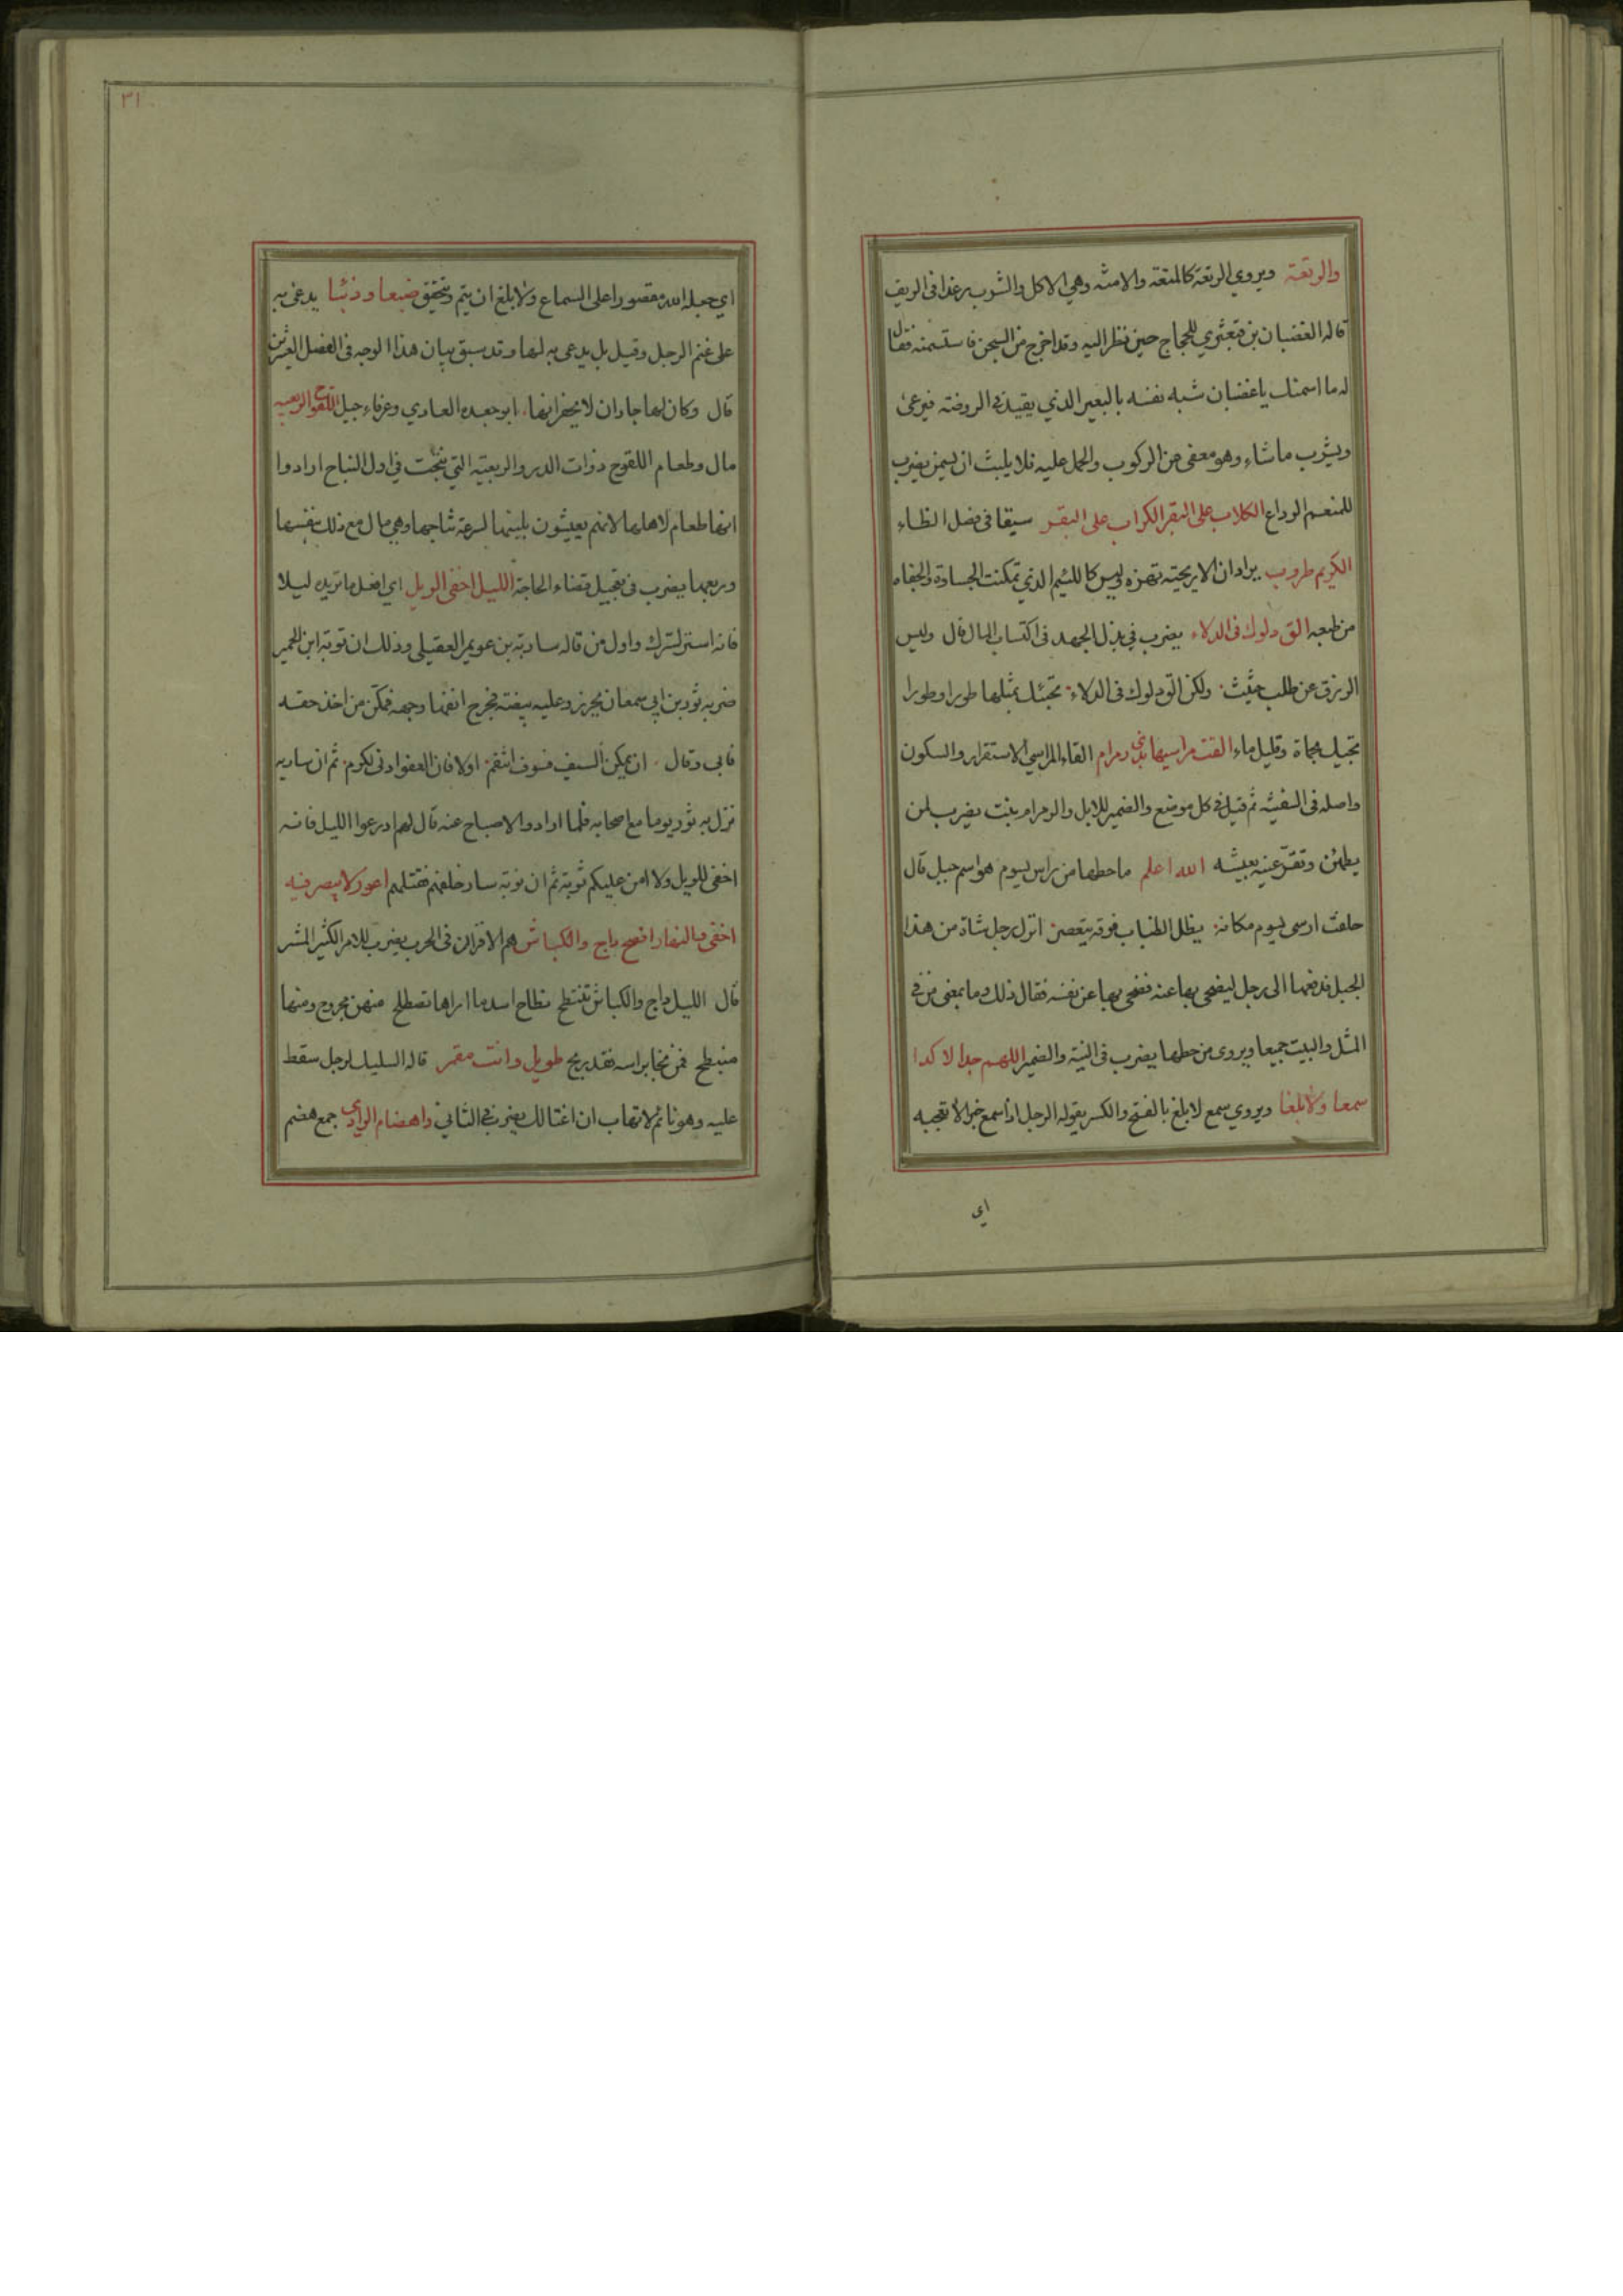 والرتعة ويروي الرتعة كالمتعة والامنه وهي الاكل والشرب رغدا في الريف
قاله الغضبان بن قبعثري للحجاج حين نظر اليه وقد اخرج من السجن فاستسمنه فقال
له ما اسمنك يا غضبان شبه نفسه بالبعير الذي يقيد في الروضة فيرعى
ويشرب ما شاء وهو معفى من الركوب والحمل عليه فلا يلبث ان يسمن يضرب
للمنعم الوداع الكلاب على البقر الكراب على البقر سبقا في فصل الظاء
الكريم طروب يراد ان الاريحية تهزه وليس كاللئيم الذي تمكنت الجساوة والجفاء
من طبعه الق دلوك في الدلاء يضرب في بذل الجهد في اكتساب المال قال وليس
الرزق عن طلب حثيث ولكن الق دلوك في الدلاء تجئك بمثلها طورا وطورا
تجيك بحماة وقليل ماء القت مراسيها بذي رمرام القاء المراسي الاستقرار والسكون
واصله في السفينة ثم قيل في كل موضع والضمير للابل والرمرام نبت يضرب لمن
يطمئن وتقر عينه بعيشه الله اعلم ما حطها من راس يسوم هو اسم جبل قال
حلفت ارسى يسوم مكانه يظل الضباب فوقه يتعصر انزل رجل شاة من هذا
الجبل فدفعها الى رجل ليضحي بها عنه فضحى بها عن نفسه فقال ذلك وما بمعنى من في
المثل والبيت جميعا ويروى من حطها يضرب في النية والضمير اللهم جدا لا كدا
سمعا ولا بلغا ويروي سمع لا بلغ بالفتح والكسر يقوله الرجل اذا سمع خبرا لا تعجبه
اي
٣١
اي جعله الله مقصورا على السماع ولا بلغ ان يتم ويتحقق ضبعا وذئبا يدعى به
على غنم الرجل وقيل بل يدعى به لها وقد سبق بيان هذا الوجه في الفصل العشرين
قال وكان لها جاران لا يخفرانها ابو جعده العادي وعرفاء جيل اللقوح الربعيه
مال وطعام اللقوح ذوات الدر والربعية التي نتجت في اول النتاج ارادوا
انها طعام لاهلها لانهم يعيشون بلبنها لسرعة نتاجها وهي مال مع ذلك بنفسها
وربعها يضرب في تعجيل قضاء الحاجة الليل اخفى الويل اي افعل ما تريده ليلا
فانه استر لسرك واول من قاله سارية بن عويمر العقيلي وذلك ان توبة ابن الحمير
ضربه ثور بن ابي سمعان بجرز وعليه بيضته فجرح انفها وجهه فمكن من اخذ حقه
فابى وقال ان يمكن السيف فسوف انتقم اولا فان العفو ادنى لكرم ثم ان ساريه
نزل به ثور يوما مع اصحابه فلما ارادوا الاصباح عنه قال لهم ادرعوا الليل فانه
اخفى للويل ولا امن عليكم توبة ثم ان توبة سار خلفهم فقتلهم اعور لا يبصر فيه
اخفى والنهار افضح داج والكباش هم الاقران في الحرب يضرب للامر الكثير الشر
قال الليل داج والكباش تنتطح نطاح اسد ما اراها تصطلح منهن مجروح ومنها
منبطح فمن نجا براسه فقد ربح طويل وانت مقمر قاله السليك لرجل سقط
عليه وهو نائم لا تهاب ان اغتالك يضرب في التاني واهضام الوادي جمع هضم